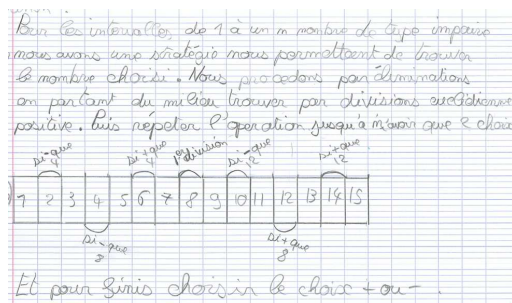 Pour les intervalles, de 1 à un n nombre de type impaire
nous avons une stratégie nous permettant de trouver
le nombre choisi. Nous procedons par éliminations
en partant du milieu trouver par divisions euclidienne
positive. Puis répeter l'operation jusqu'à n'avoir que 2 choix
si - que 4
si + que 4
1ère division
si - que 12
si + que 12
1 2 3 4 5 6 7 8 9 10 11 12 13 14 15
si - que 8
si + que 8
Et pour finis choisir le choix + ou -.